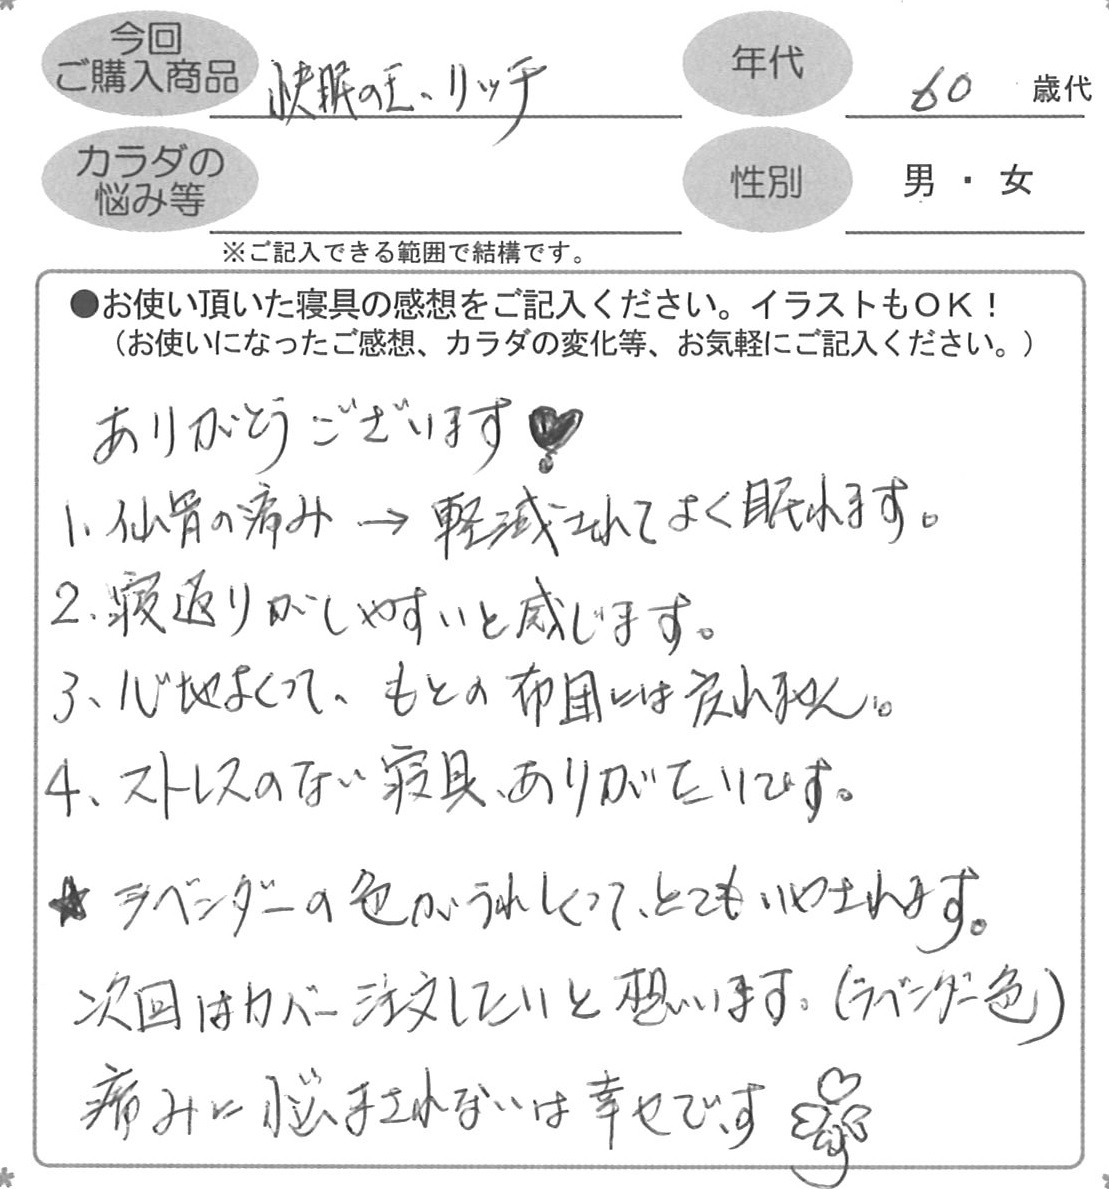 今回
ご購入商品
快眠の王、リッチ
年代
60 歳代
カラダの
悩み等
性別
男・女
※ご記入できる範囲で結構です。
●お使い頂いた寝具の感想をご記入ください。イラストもOK!
(お使いになったご感想、カラダの変化等、お気軽にご記入ください。)
ありがとうございます
1、仙骨の痛み → 軽減されてよく眠れます。
2、寝返りがしやすいと感じます。
3、心地よくって、もとの布団には戻れません。
4、ストレスのない寝具、ありがたいです。
★ ラベンダーの色がうれしくって、とてもいやされます。
次回はカバー注文したいと想います。(ラベンダー色)
痛みに悩まされないは幸せです